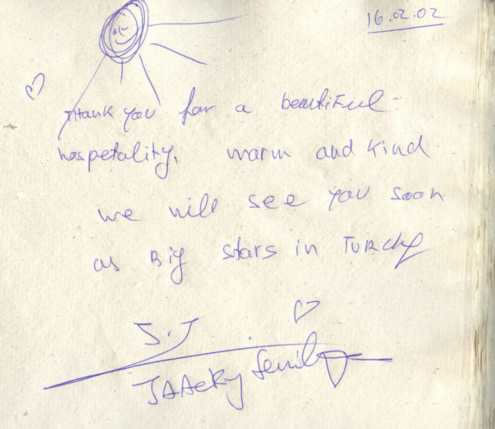 16.02.02
Thank you for a beautiful
hospetality, warm and kind
we will see you soon
as Big stars in
J.J